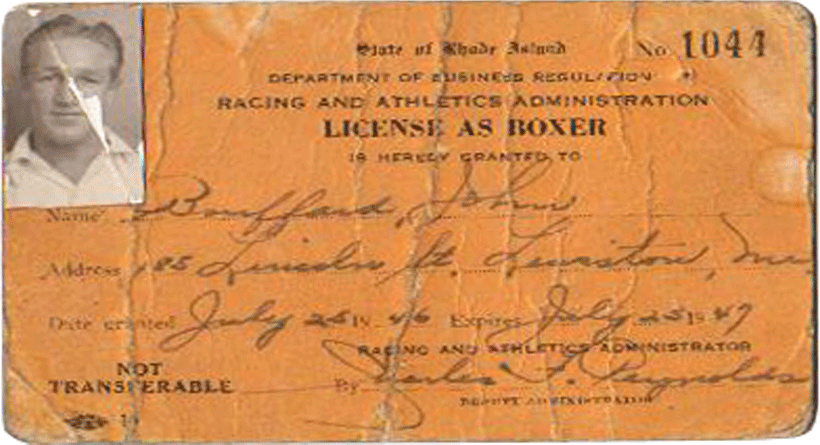 State of Rhode Island No. 1044
DEPARTMENT OF BUSINESS REGULATION
RACING AND ATHLETICS ADMINISTRATION
LICENSE AS BOXER
IS HEREBY GRANTED TO
Name Bouffard, John
Address 185 Lincoln St. Lewiston, Me.
Date granted July 25 19 46 Expires July 25 19 47
RACING AND ATHLETICS ADMINISTRATOR
NOT
TRANSFERABLE
By Charles F. Reynolds
DEPUTY ADMINISTRATOR